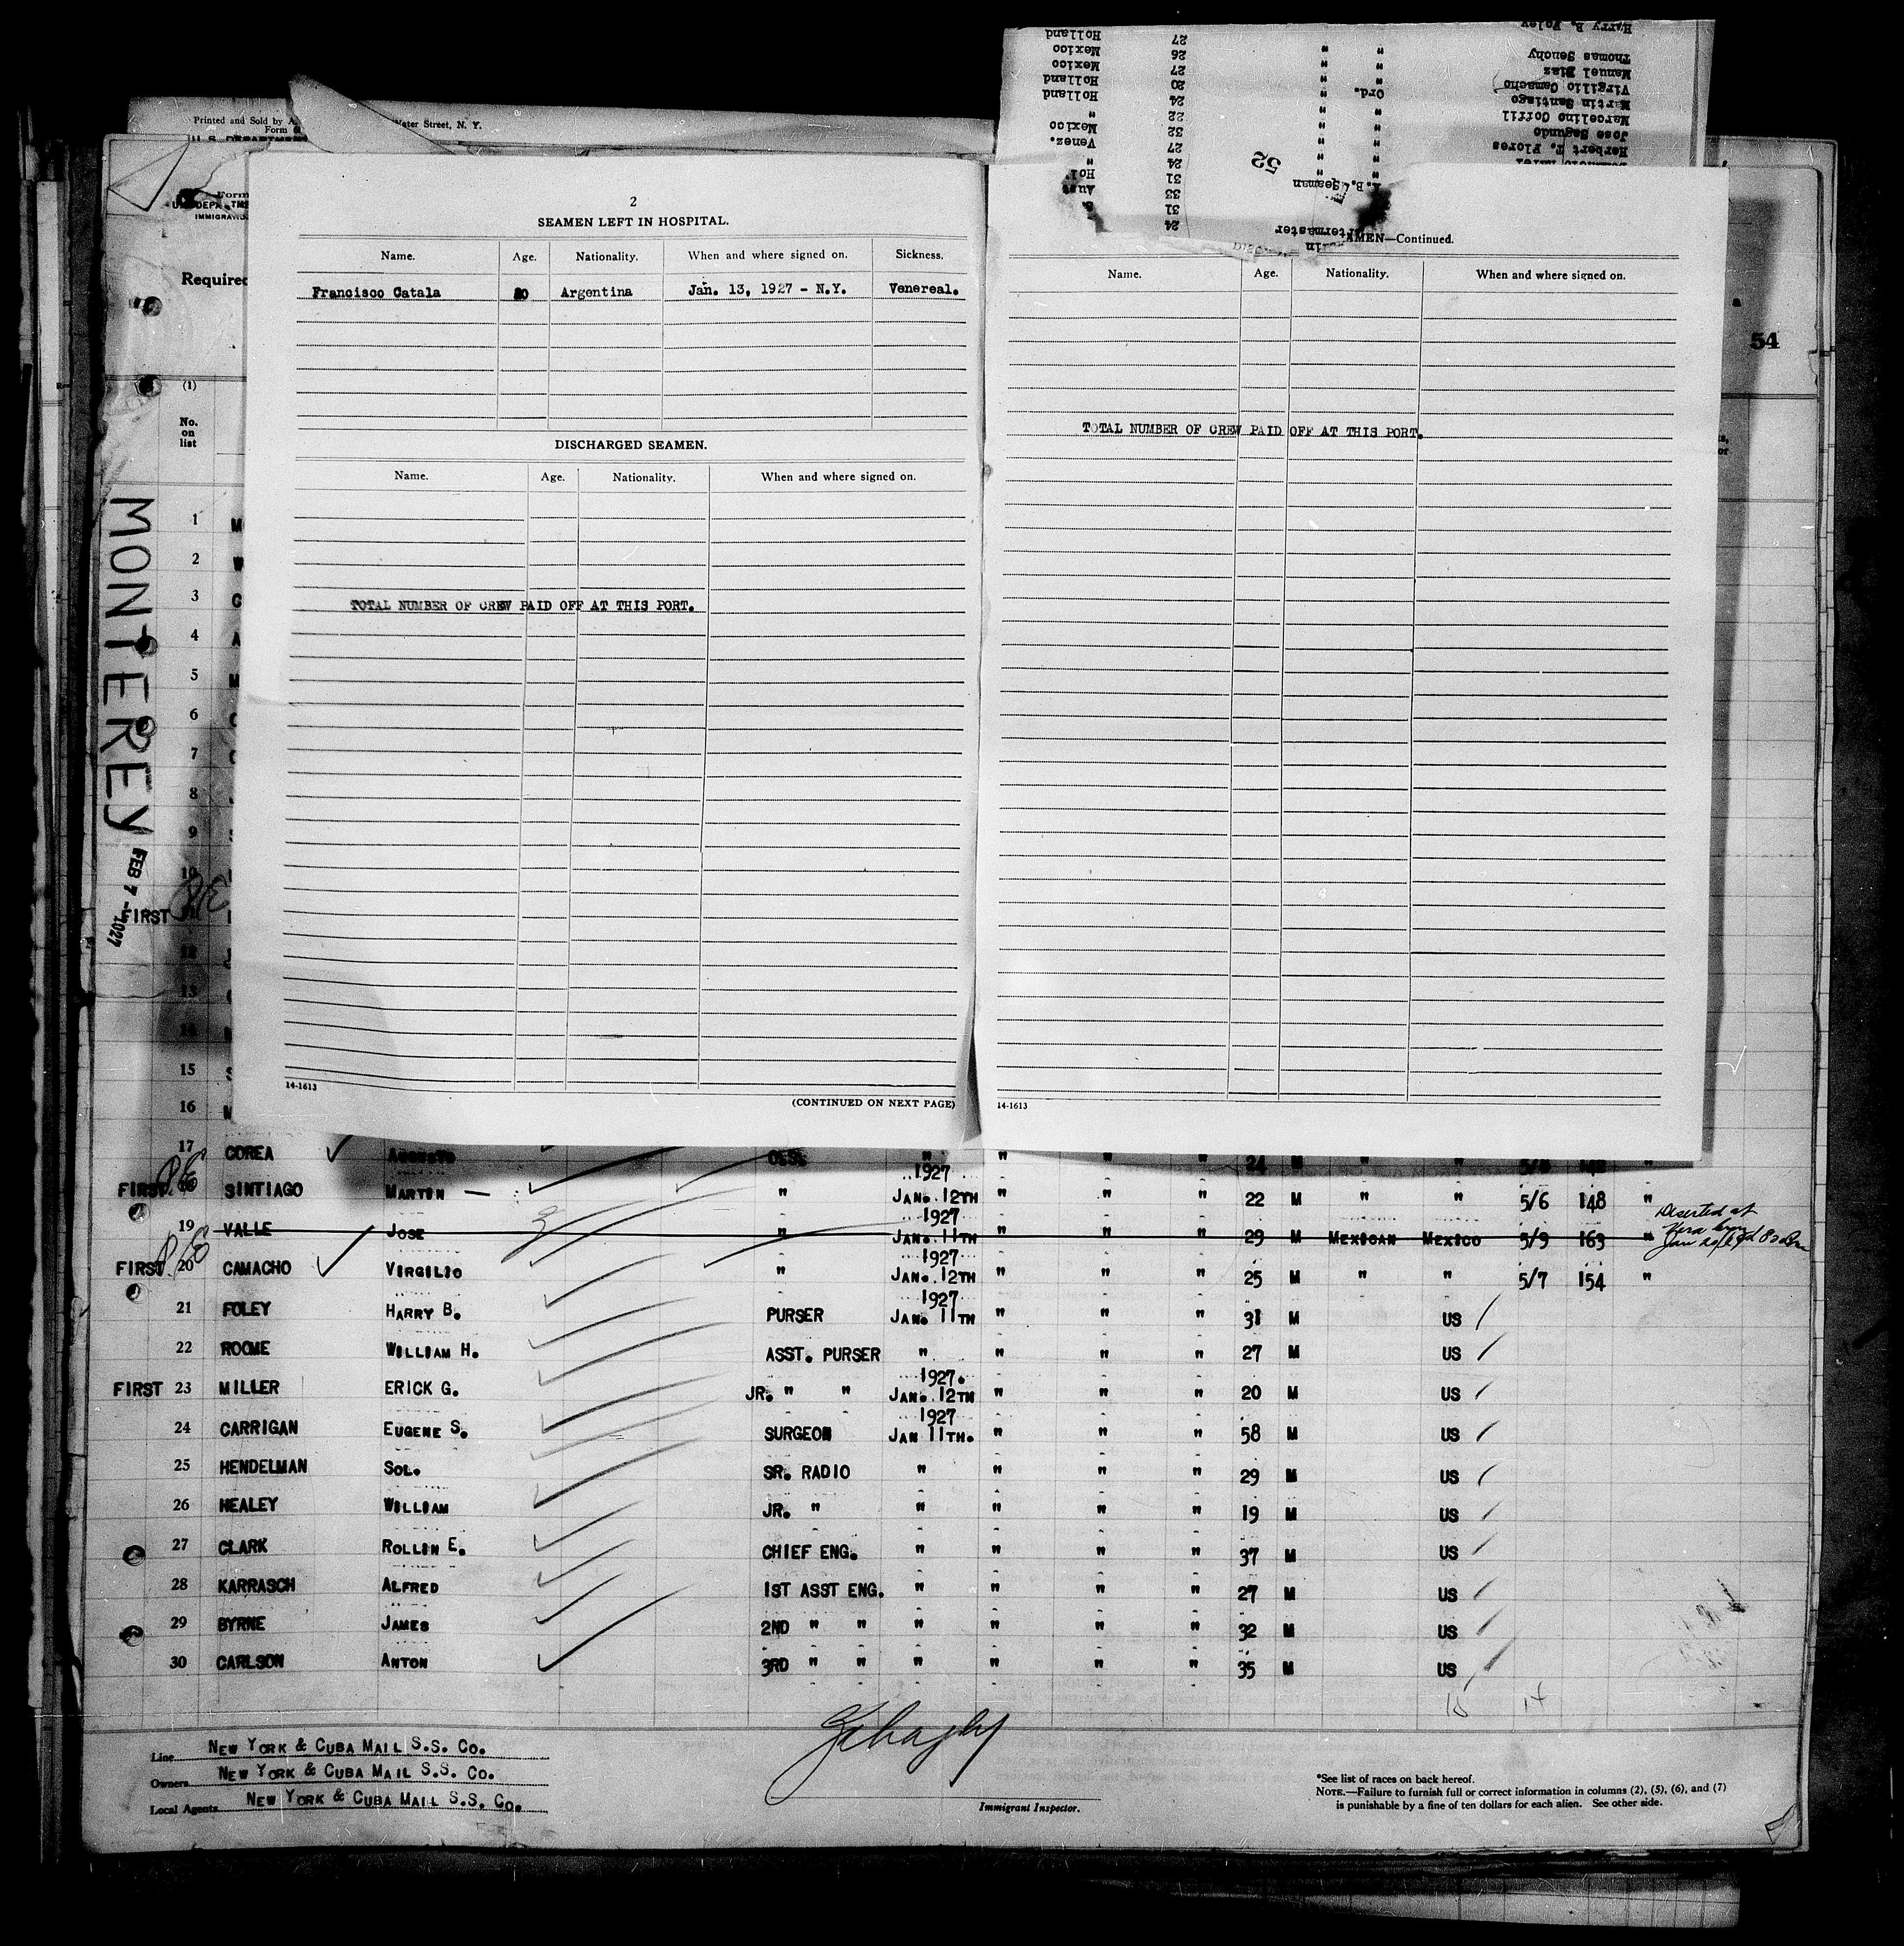 Harry B. Foley
Thomas Senohy
Manuel Diaz " " 27 Holland
Virgilio Camacho " " 26 Mexico
Martin Santiago Ord. 27 Mexico
Marcelino Coffil " " 20 Holland
Jose Segundo " " 24 Holland
Herbert T. Flores " " 22 "
32 Mexico
27 Venez.
24 "
A.B. Seaman 31 Hol.
33 Aust
31
24
52
Printed and Sold by A. Water Street, N. Y.
Form
U. S. DEPARTMENT
Form
IMMIGRATION
Required
54
(1)
No.
on
list
MONTEREY
FEB 7 - 1927
2
SEAMEN LEFT IN HOSPITAL.
Name. Age. Nationality. When and where signed on. Sickness.
Francisco Catala 20 Argentina Jan. 13, 1927 - N.Y. Venereal.
DISCHARGED SEAMEN.
Name. Age. Nationality. When and where signed on.
TOTAL NUMBER OF CREW PAID OFF AT THIS PORT.
14-1613
(CONTINUED ON NEXT PAGE)
AMEN—Continued.
Name. Age. Nationality. When and where signed on.
TOTAL NUMBER OF CREW PAID OFF AT THIS PORT.
14-1613
1
2
3
4
5
6
7
8
9
10
FIRST
12
13
14
15
16
17 COREA AUGUSTO O.S. " " " " 24 M " " "
FIRST 18 SINTIAGO MARTIN — " 1927 JAN. 12TH " " " 22 M " " 5/6 148 "
19 VALLE JOSE " 1927 JAN. 11TH " " " 29 M MEXICAN MEXICO 5/9 163 " Deserted at
FIRST 20 CAMACHO VIRGILIO " 1927 JAN. 12TH " " " 25 M " " 5/7 154 "
21 FOLEY HARRY B. PURSER 1927 JAN. 11TH " " " 31 M US
22 ROOME WILLIAM H. ASST. PURSER " " " " 27 M US
FIRST 23 MILLER ERICK G. JR. " " 1927. JAN. 12TH " " " 20 M US
24 CARRIGAN EUGENE S. SURGEON 1927 JAN 11TH. " " " 58 M US
25 HENDELMAN SOL. SR. RADIO " " " " 29 M US
26 HEALEY WILLIAM JR. " " " " " 19 M US
27 CLARK ROLLIN E. CHIEF ENG. " " " " 37 M US
28 KARRASCH ALFRED 1ST ASST ENG. " " " " 27 M US
29 BYRNE JAMES 2ND " " " " " " 32 M US
30 CARLSON ANTON 3RD " " " " " " 35 M US
Line NEW YORK & CUBA MAIL S.S. CO.
Owners NEW YORK & CUBA MAIL S.S. CO.
Local Agents NEW YORK & CUBA MAIL S.S. CO.
Immigrant Inspector.
*See list of races on back hereof.
NOTE.—Failure to furnish full or correct information in columns (2), (5), (6), and (7)
is punishable by a fine of ten dollars for each alien. See other side.